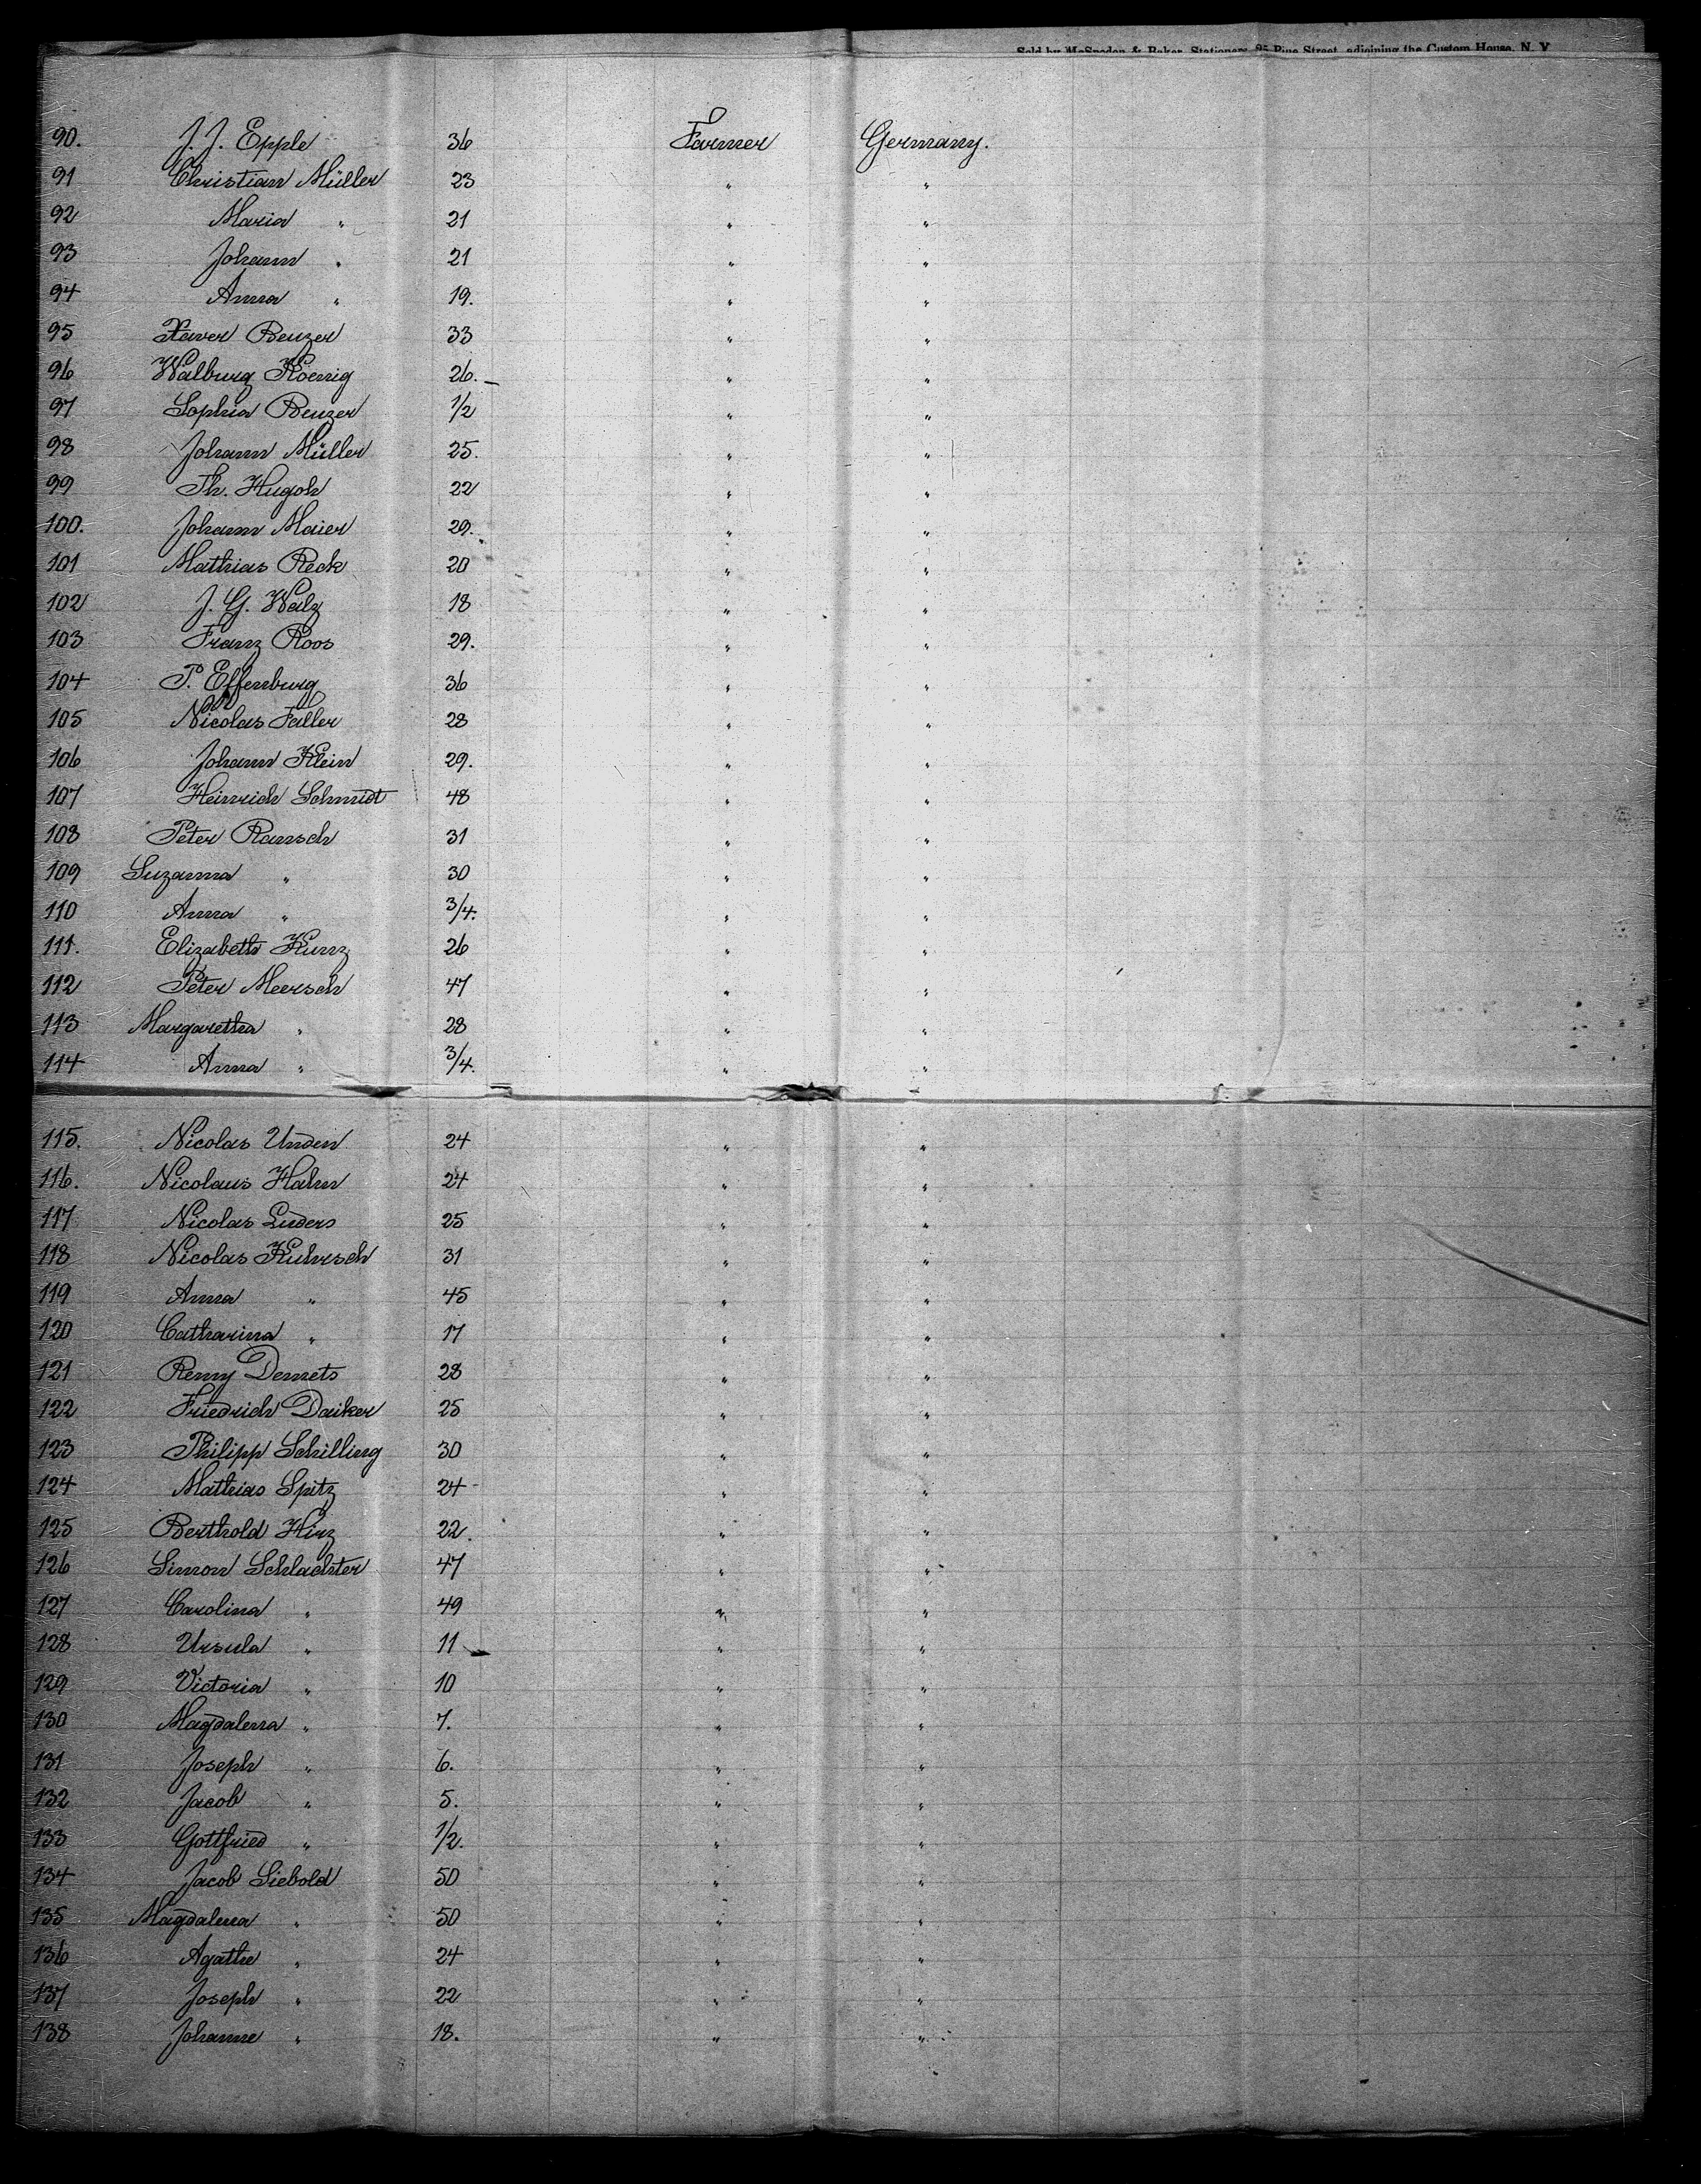 Sold by McSpedon & Baker, Stationers, 25 Pine Street, adjoining the Custom House, N. Y.
90. J. J. Epple 36 Farmer Germany.
91 Christian Müller 23 " "
92 Maria " 21 " "
93 Johann " 21 " "
94 Anna " 19. " "
95 Xaver Benzer 33 " "
96 Walburg Koenig 26. " "
97 Sophia Benzer 1/2 " "
98 Johann Müller 25. " "
99 Th. Hugoh 22 " "
100. Johann Maier 29. " "
101 Mathias Reck 20 " "
102 J. G. Walz 18 " "
103 Franz Roos 29. " "
104 P. Effenburg 36 " "
105 Nicolas Faller 28 " "
106 Johann Klein 29. " "
107 Heinrich Schmidt 48 " "
108 Peter Ransch 31 " "
109 Suzanna " 30 " "
110 Anna " 3/4. " "
111. Elizabeth Kunz 26 " "
112 Peter Meersch 47 " "
113 Margaretha " 28 " "
114 Anna " 3/4. " "
115. Nicolas Unden 24 " "
116. Nicolaus Hahn 24 " "
117 Nicolas Luders 25 " "
118 Nicolas Kuhrsch 31 " "
119 Anna " 45 " "
120 Catharina " 17 " "
121 Remy Demets 28 " "
122 Friedrich Daiker 25 " "
123 Philipp Schilling 30 " "
124 Mathias Spitz 24 " "
125 Berthold Hinz 22. " "
126 Simon Schlachter 47 " "
127 Carolina " 49 " "
128 Ursula " 11 " "
129 Victoria " 10 " "
130 Magdalena " 7. " "
131 Joseph " 6. " "
132 Jacob " 5. " "
133 Gottfried " 1/2. " "
134 Jacob Siebold 50 " "
135 Magdalena " 50 " "
136 Agathe " 24 " "
137 Joseph " 22 " "
138 Johanne " 18. " "